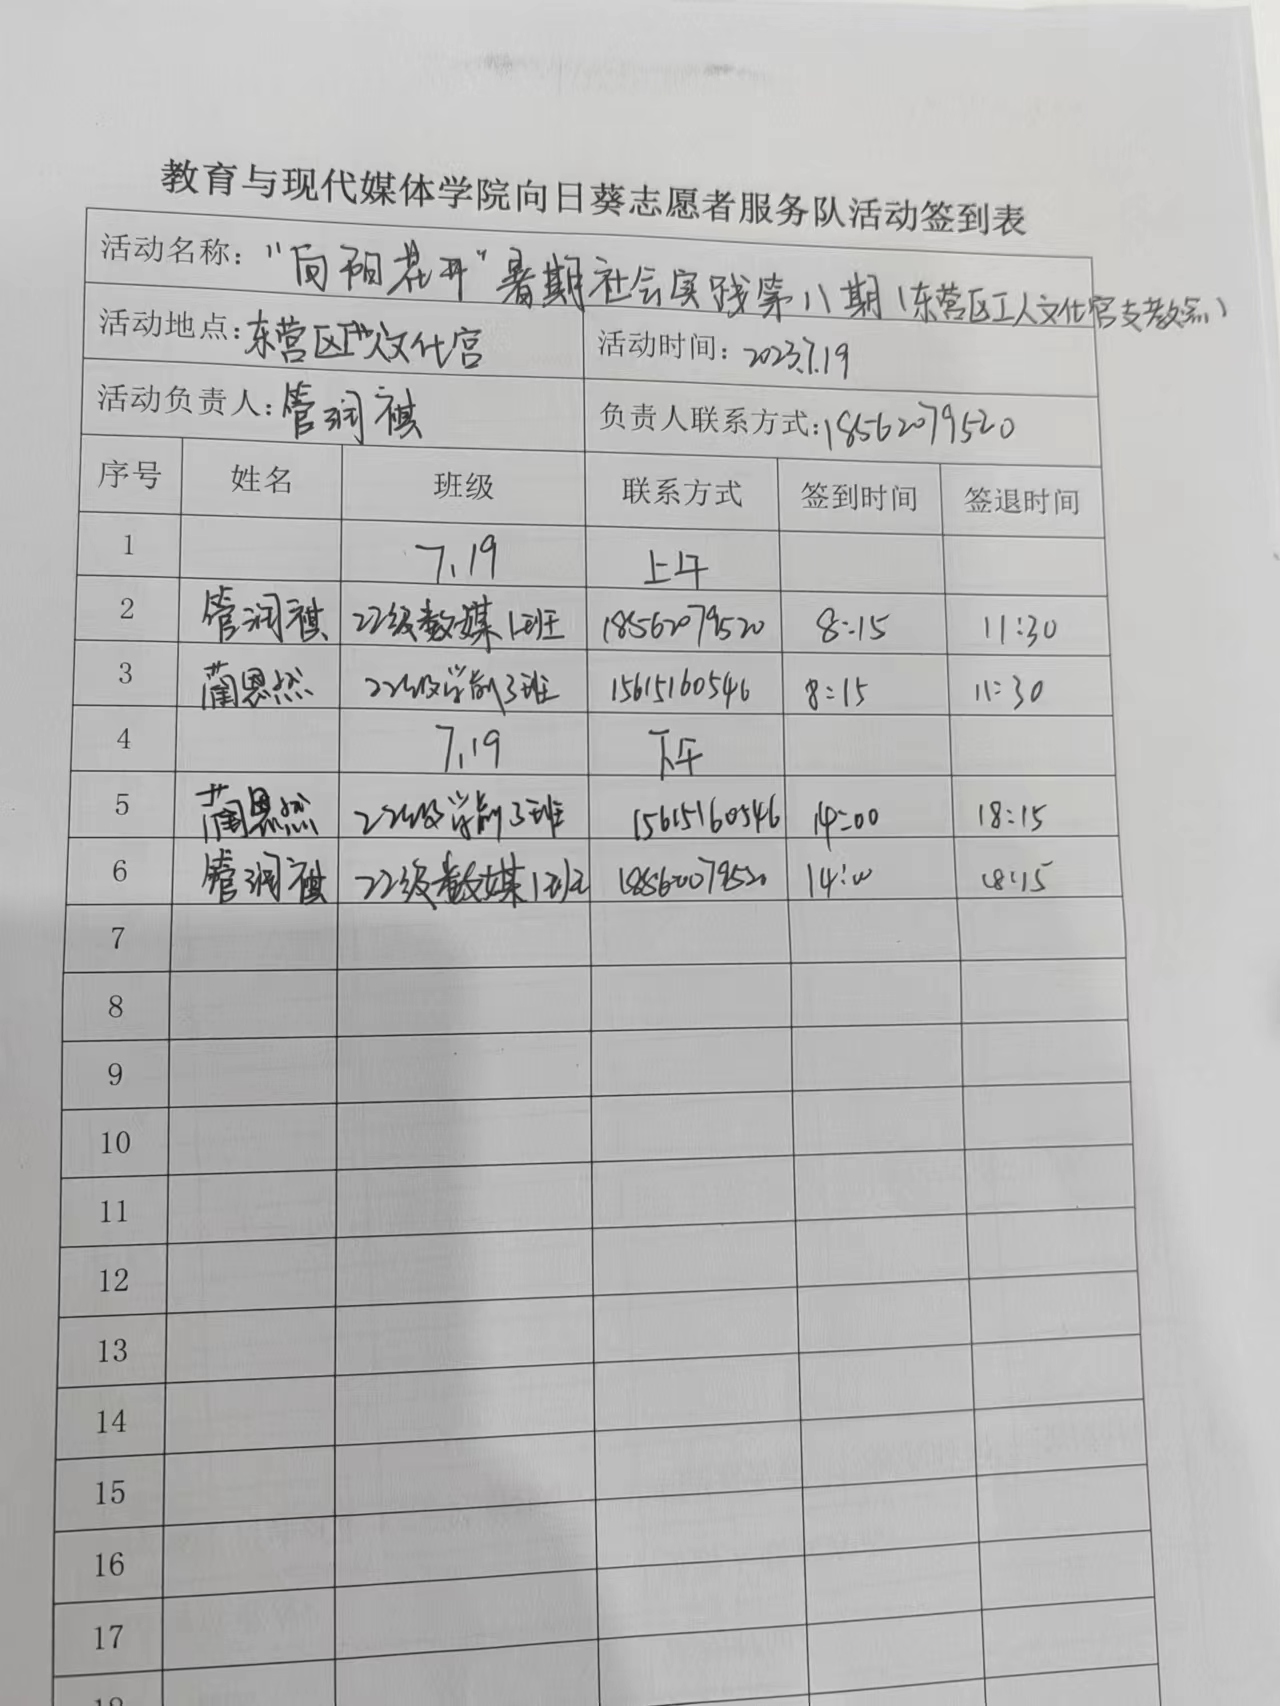 教育与现代媒体学院向日葵志愿者服务队活动签到表
活动名称："向阳花开"暑期社会实践第八期(东营区工人文化宫支教)
活动地点:东营区工人文化宫 活动时间: 2023.7.19
活动负责人:管润祺 负责人联系方式:18562079520
序号 姓名 班级 联系方式 签到时间 签退时间
1 7.19 上午
2 管润祺 22级数媒1班 18562079520 8:15 11:30
3 蔺恩然 22级学前3班 15615160546 8:15 11:30
4 7.19 下午
5 蔺恩然 22级学前3班 15615160546 14:00 18:15
6 管润祺 22级数媒1班 18562079520 14:00 18:15
7
8
9
10
11
12
13
14
15
16
17
18